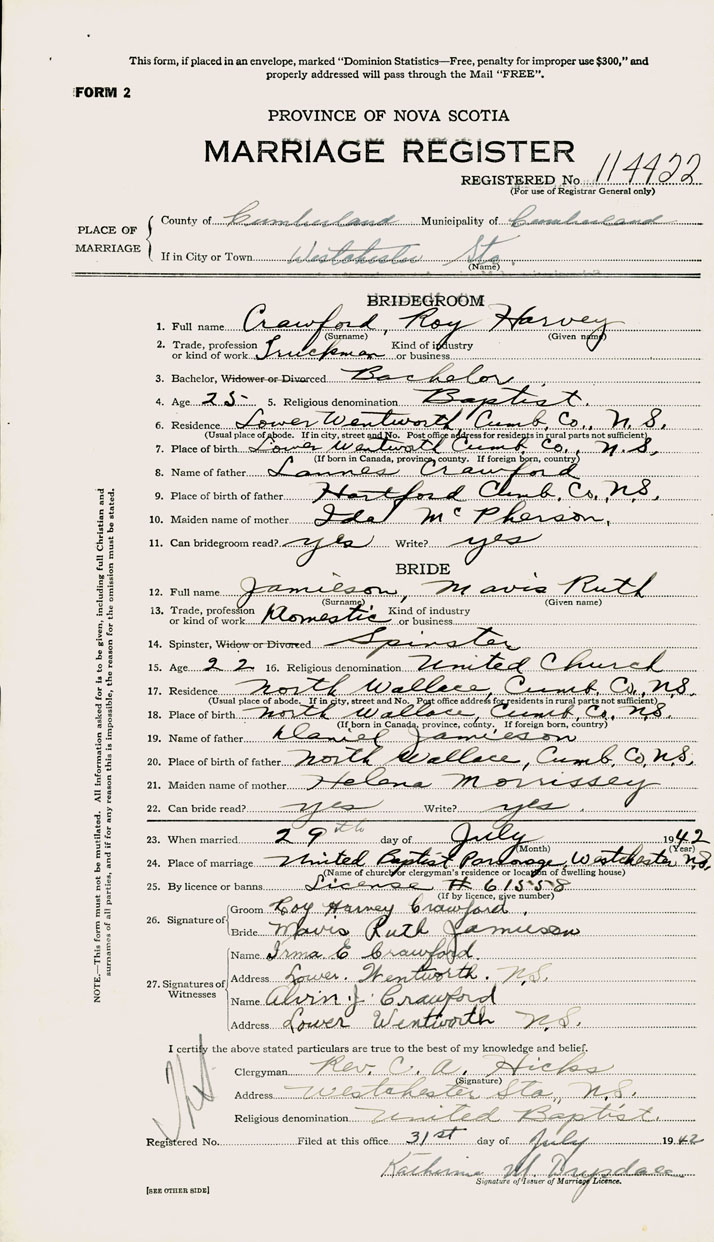 This form, if placed in an envelope, marked "Dominion Statistics—Free, penalty for improper use $300," and
properly addressed will pass through the Mail "FREE".
FORM 2
PROVINCE OF NOVA SCOTIA
MARRIAGE REGISTER
REGISTERED No. 114422
(For use of Registrar General only)
PLACE OF MARRIAGE
County of Cumberland Municipality of Cumberland
If in City or Town Westchester Sta.
(Name)
BRIDEGROOM
1. Full name Crawford, Roy Harvey
(Surname) (Given name)
2. Trade, profession or kind of work Truckman Kind of industry or business
3. Bachelor, Widower or Divorced Bachelor
4. Age 25 5. Religious denomination Baptist.
6. Residence Lower Wentworth Cumb. Co., N.S.
(Usual place of abode. If in city, street and No. Post office address for residents in rural parts not sufficient)
7. Place of birth Lower Wentworth Cumb. Co., N.S.
(If born in Canada, province, county. If foreign born, country)
8. Name of father Crawford
9. Place of birth of father Hartford Cumb. Co. N.S.
10. Maiden name of mother Ida McPherson,
11. Can bridegroom read? yes Write? yes
BRIDE
12. Full name Jamieson, Mavis Ruth
(Surname) (Given name)
13. Trade, profession or kind of work Domestic Kind of industry or business
14. Spinster, Widow or Divorced Spinster
15. Age 22 16. Religious denomination United Church
17. Residence North Wallace, Cumb. Co., N.S.
(Usual place of abode. If in city, street and No. Post office address for residents in rural parts not sufficient)
18. Place of birth North Wallace, Cumb. Co. N.S.
(If born in Canada, province, county. If foreign born, country)
19. Name of father Daniel Jamieson
20. Place of birth of father North Wallace, Cumb. Co, N.S.
21. Maiden name of mother Helena Morrissey
22. Can bride read? yes Write? yes.
23. When married 29th day of July 1942
(Month) (Year)
24. Place of marriage United Baptist Parsonage, Westchester N.S.
(Name of church or clergyman's residence or location of dwelling house)
25. By licence or banns License # 61558
(If by licence, give number)
26. Signature of
Groom Roy Harvey Crawford.
Bride Mavis Ruth Jamieson
27. Signatures of Witnesses
Name Irma E Crawford.
Address Lower. Wentworth. N.S.
Name Alvin J. Crawford
Address Lower Wentworth N.S.
I certify the above stated particulars are true to the best of my knowledge and belief.
Clergyman Rev. C. A. Hicks
(Signature)
Address Westchester Sta., N.S.
Religious denomination United Baptist.
Registered No. Filed at this office 31st day of July 1942
M. Drysdale
Signature of Issuer of Marriage Licence.
[SEE OTHER SIDE]
NOTE.—This form must not be mutilated. All information asked for is to be given, including full Christian and
surnames of all parties, and if for any reason this is impossible, the reason for the omission must be stated.